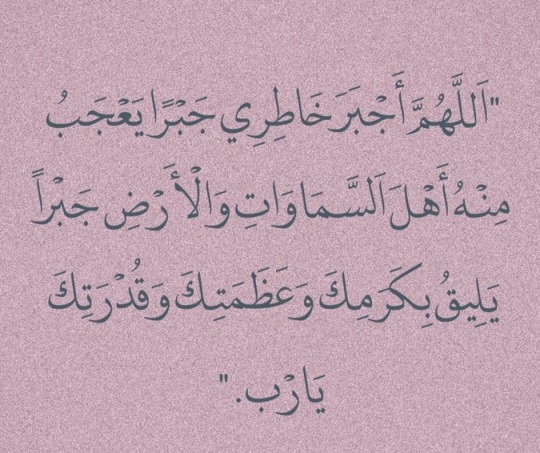 "اَللَّهُمَّ أَجْبَرَ خَاطِرِي جَبْرًا يَعْجَبُ
مِنْهُ أَهْلَ اَلسَّمَاوَاتِ وَالْأَرْضِ جَبْراً
يَلِيقُ بِكَرَمِكَ وَعَظَمَتِكَ وَقُدْرَتِكَ
يَارْب."